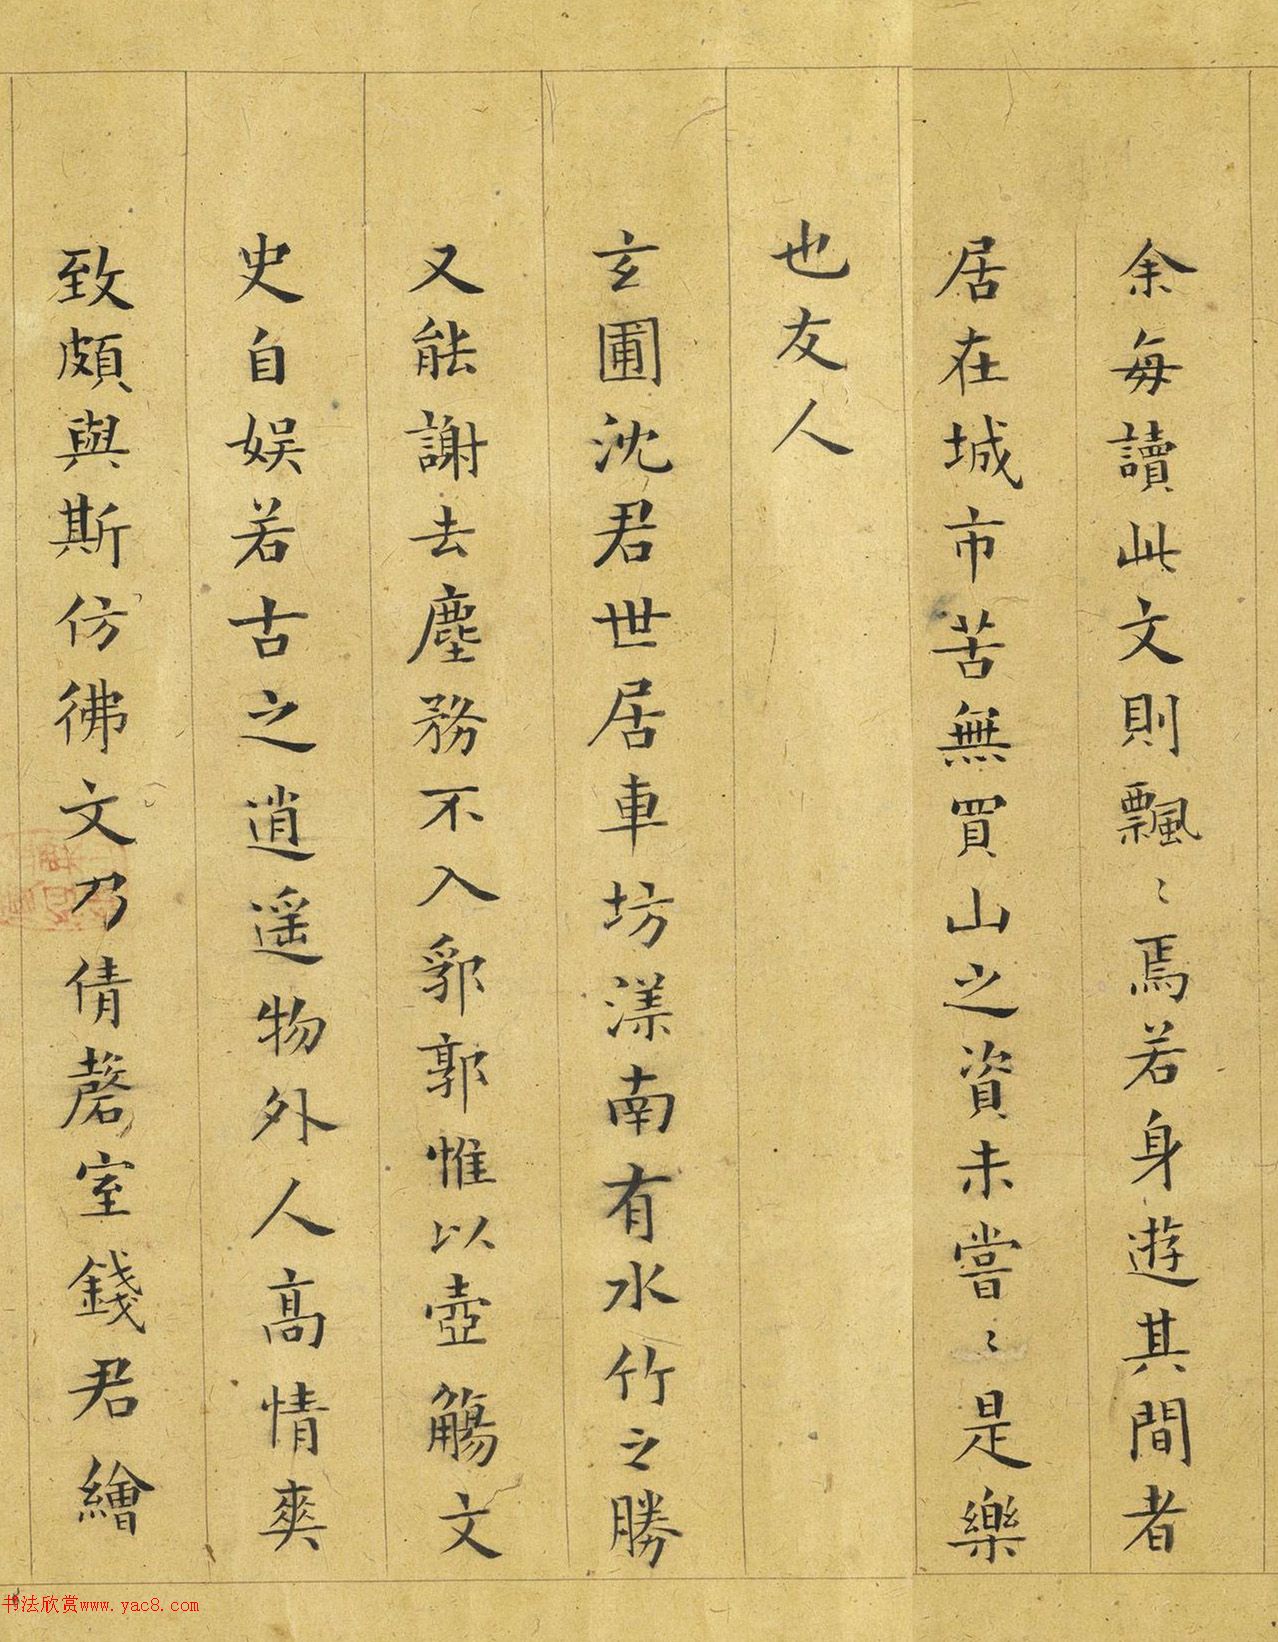 余每讀此文則飄〻焉若身遊其間者
居在城市苦無買山之資未嘗〻是樂
也友人
玄圃沈君世居車坊漾南有水竹之勝
又能謝去塵務不入郛郭惟以壺觴文
史自娱若古之逍遥物外人高情爽
致頗與斯仿彿文乃倩磬室錢君繪
书法欣赏www.yac8.com